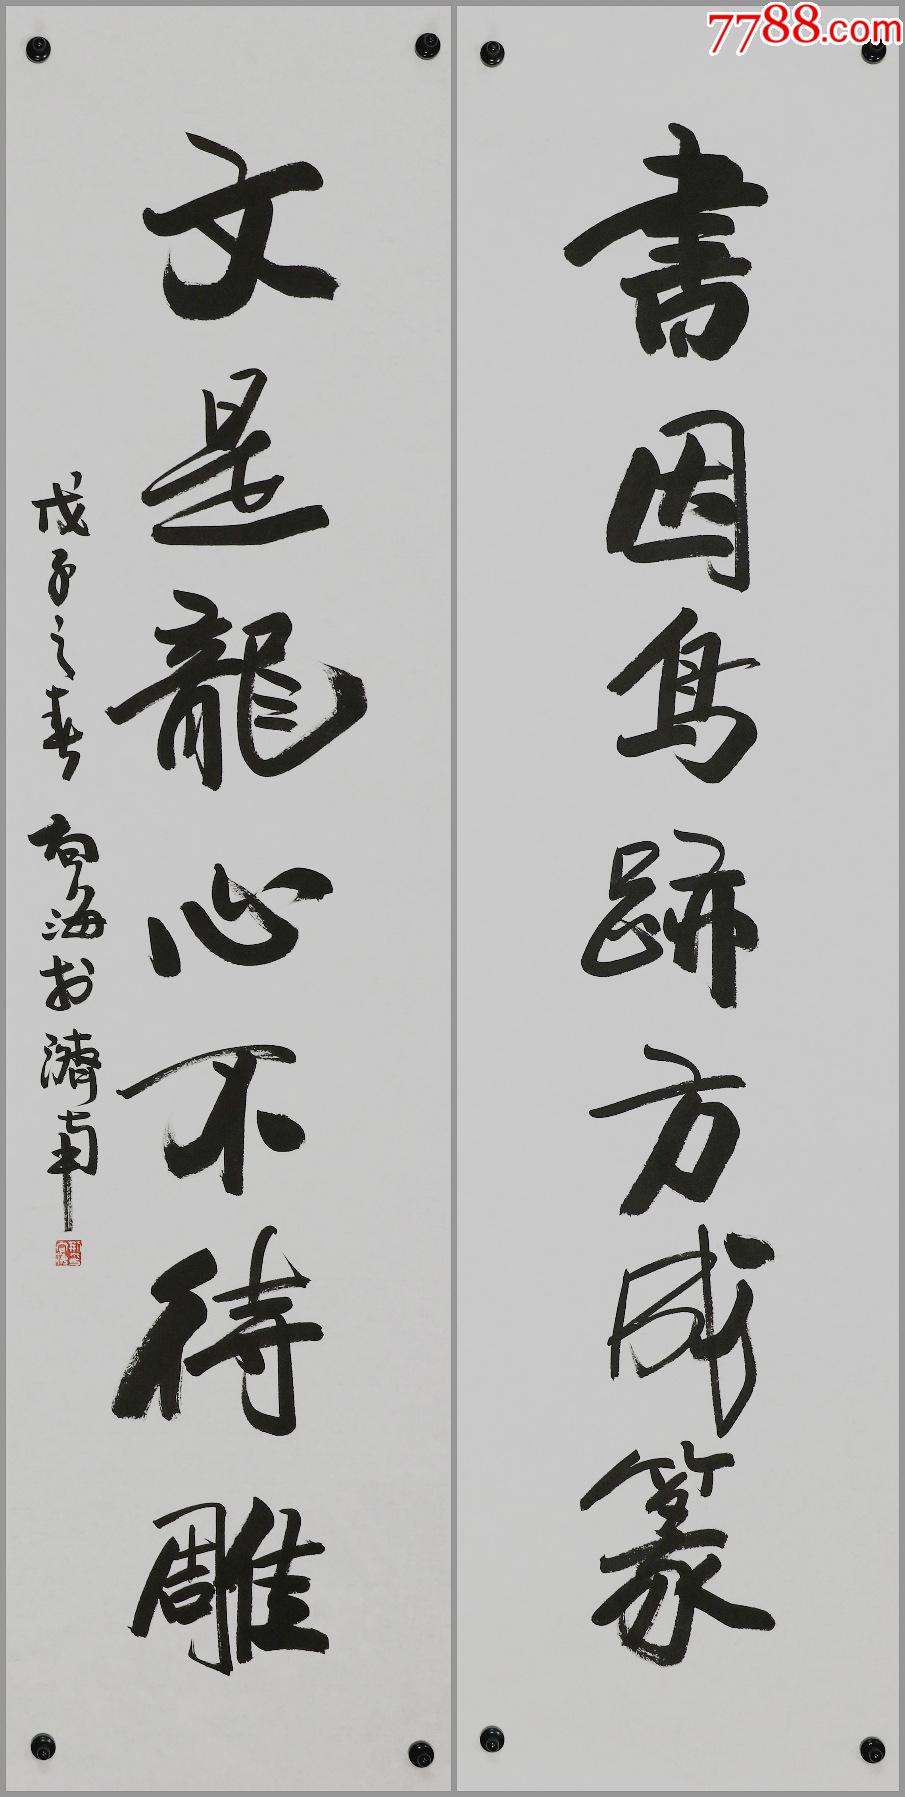 7788.com
書因鳥跡方成篆
文是龍心不待雕
戊子之春 向海於濟南